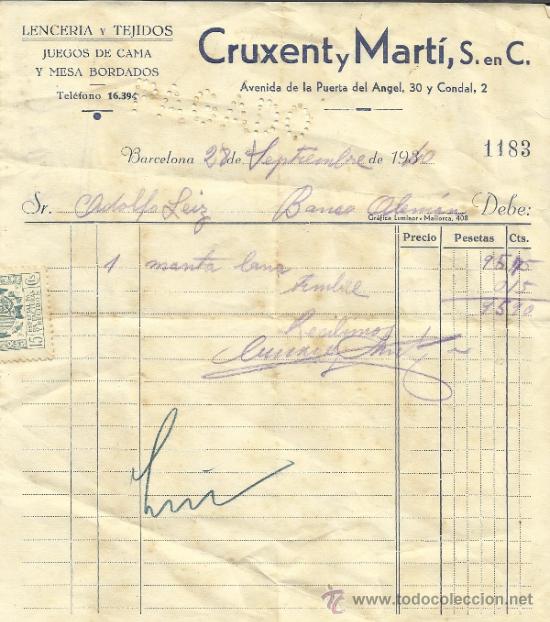 LENCERIA Y TEJIDOS
JUEGOS DE CAMA
Y MESA BORDADOS
Teléfono 16.394
Cruxent y Martí, S. en C.
Avenida de la Puerta del Angel, 30 y Condal, 2
PAGADO
Barcelona 28 de Septiembre de 1940
1183
Sr. Adolfo Leiz Banco Alemán Debe:
Gráfica Luminor - Mallorca, 408
Precio Pesetas Cts.
1 manta lana 95 75
timbre 0 15
95 90
Recibimos
Cruxent Martí
15 Cts
TC www.todocoleccion.net